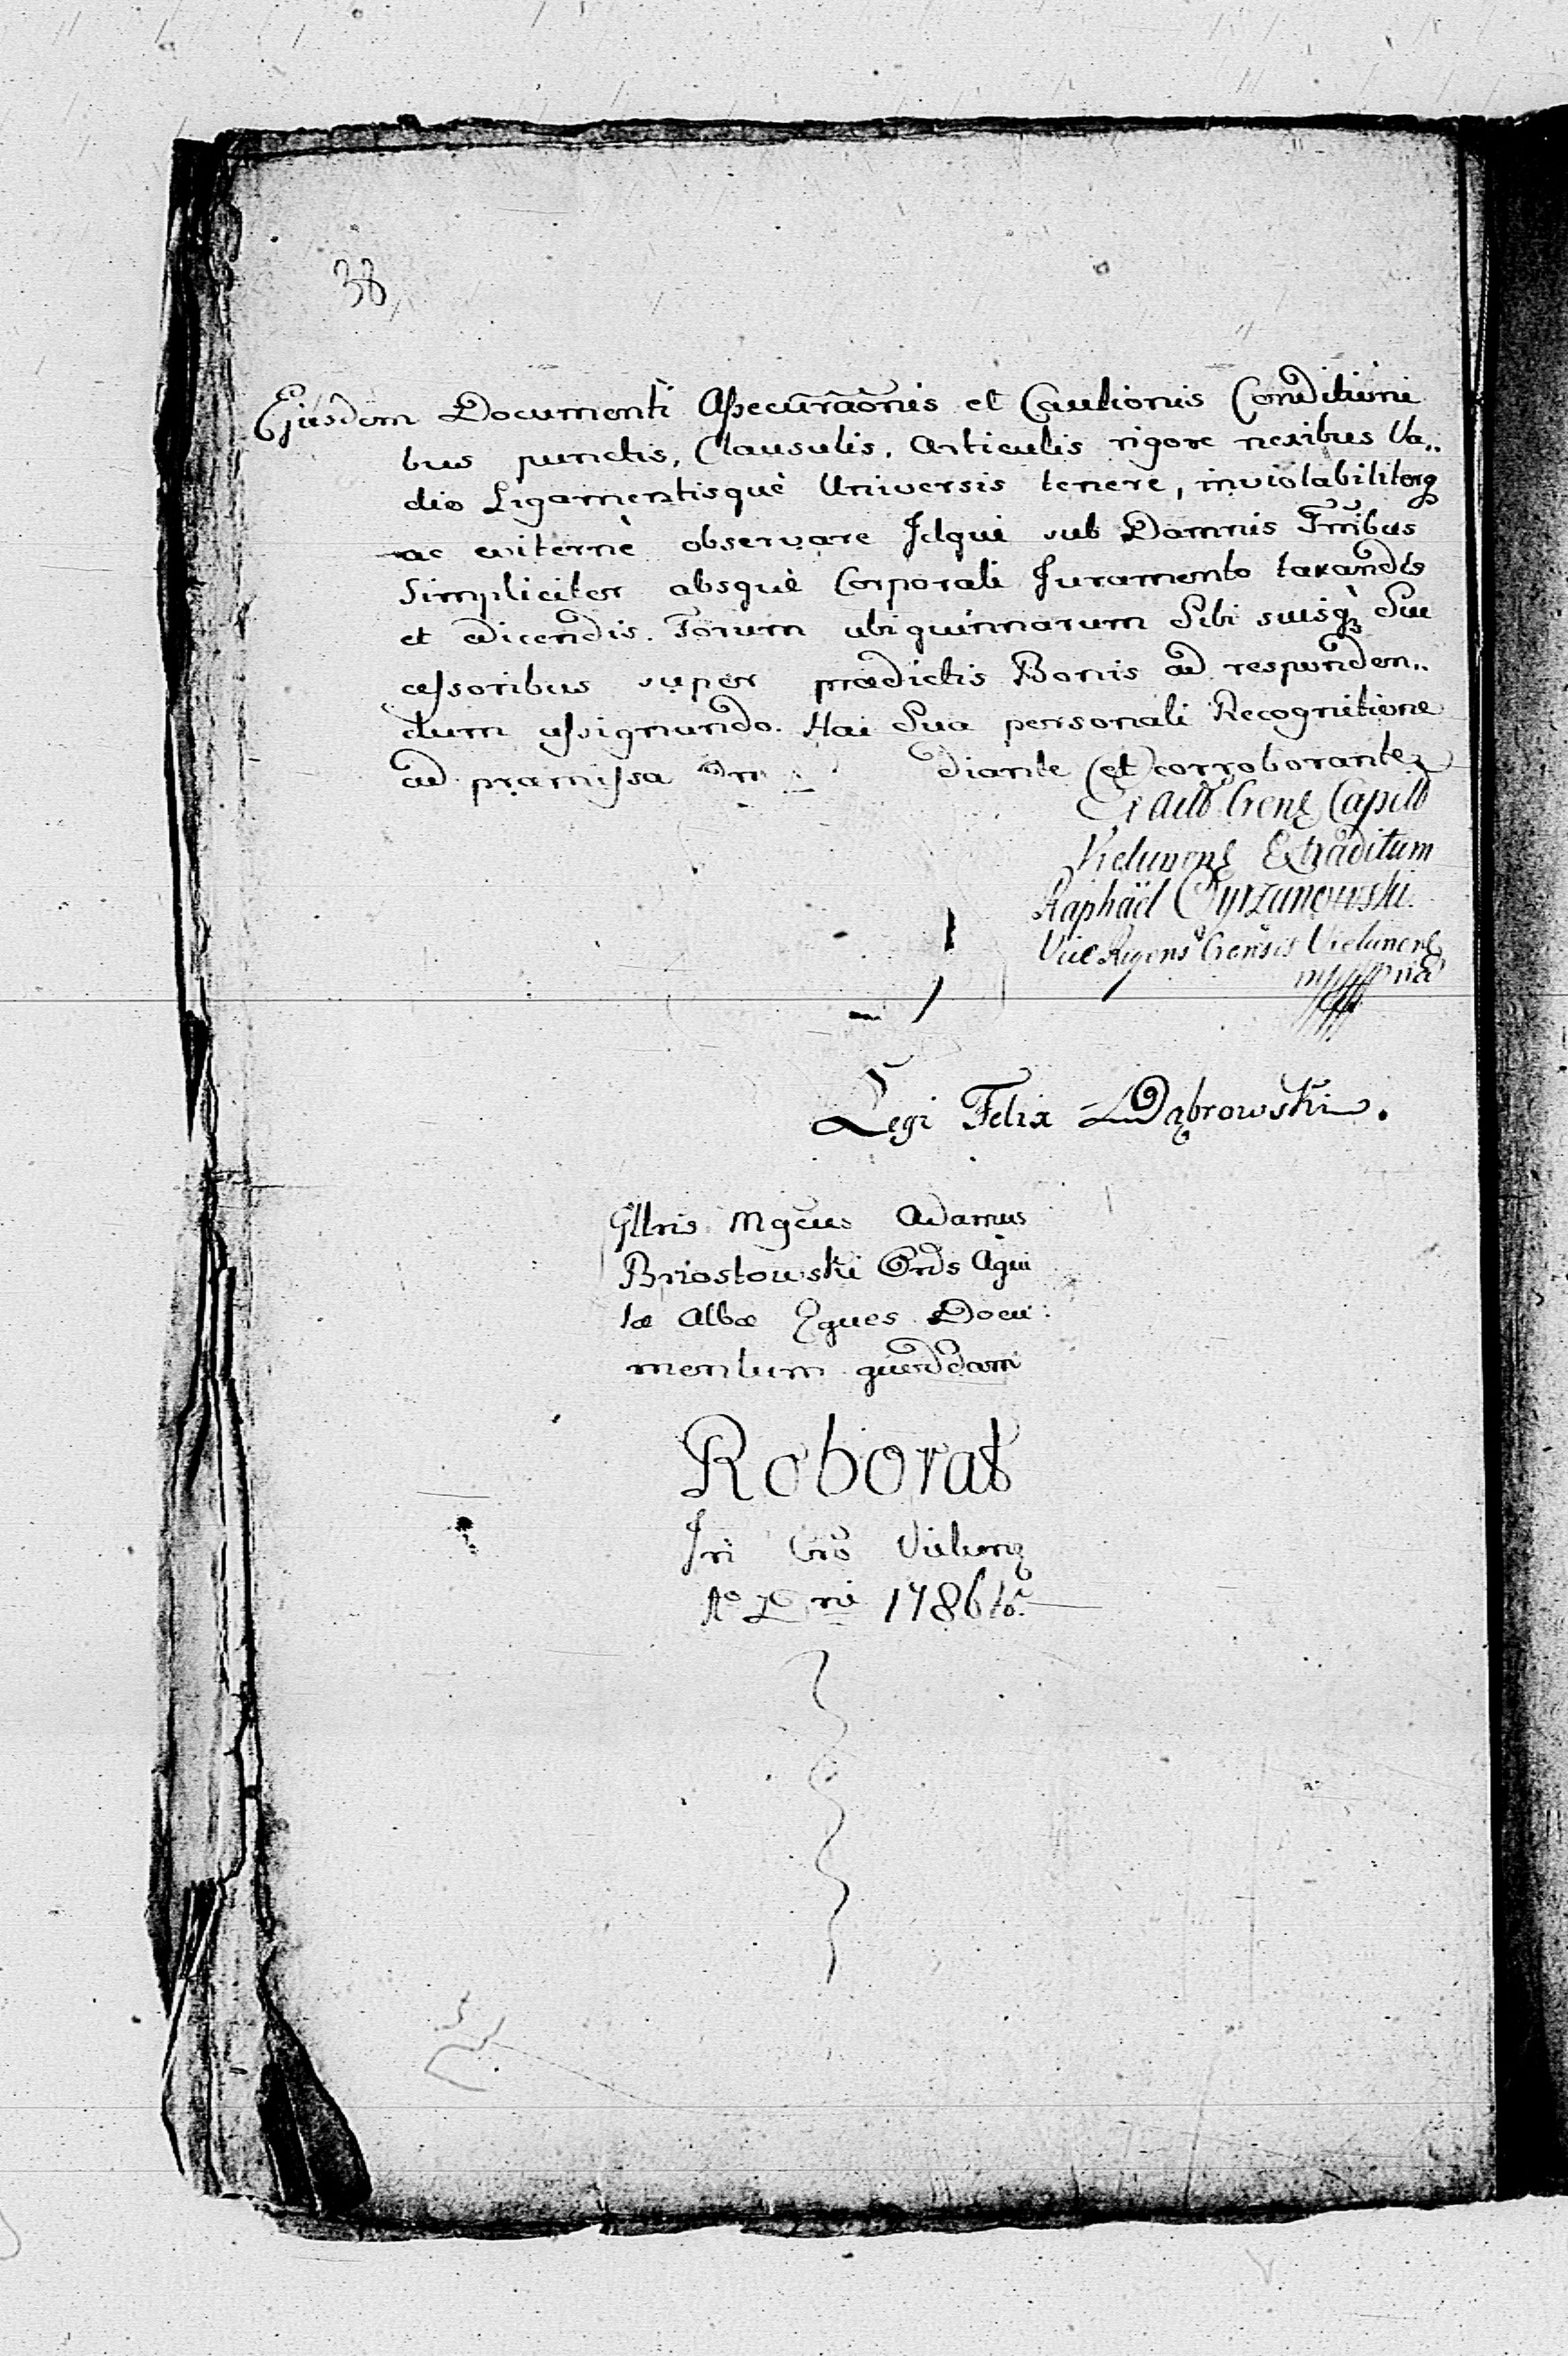 38,
Ejusdem Documenti Assecuraõnis et Cautionis Conditioni
bus punctis, Clausulis, Articulis rigore nexibus Va„
dio Ligamentisquè Universis tenere, inviolabiliterq
ac eviternè observare Idqui sub Damnis Trribus
Simpliciter absquè Corporali Juramento taxandis
et edicendis. Forum ubiquinnarum Sibi suisq Suc
cessoribus super prædictis Bonis ad responden„
dum assignando. Hac Sua personali Recognitione
ad præmissa diante et corroborante
Ex Actis Crens Capit
Vielunens Extraditum
Raphaël Cyrzanowski.
Vice Regens Crensis Vielunens
Legi Felix Dąbrowski.
Illris Mgcus Adamus
Brzostowski Ords Aqui
læ Albæ Eques Docu:
mentum quoddam
Roborat
In Cro Vielunȩ
Ao Dni 1786to.